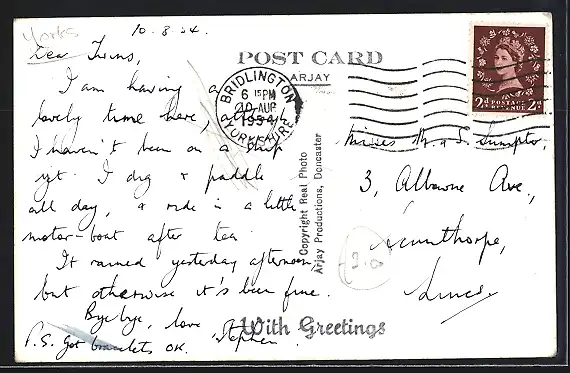 Yorks
10.8.54.
Dear Twins,
I am having a
lovely time here, although
I haven't been on a ship
yet. I dig & paddle
all day, & ride in a little
motor-boat after tea.
It rained yesterday afternoon,
but otherwise it's been fine.
Bye bye, love Stephen
P.S. Got bracelets OK.
POST CARD
ARJAY
BRIDLINGTON
6 15 PM
10 AUG
1954
YORKSHIRE
POSTAGE
REVENUE
2d 2d
Copyright Real Photo
Arjay Productions, Doncaster
Misses M. & S. Sumpter,
3, Ave.,
Scunthorpe,
Lincs.
With Greetings